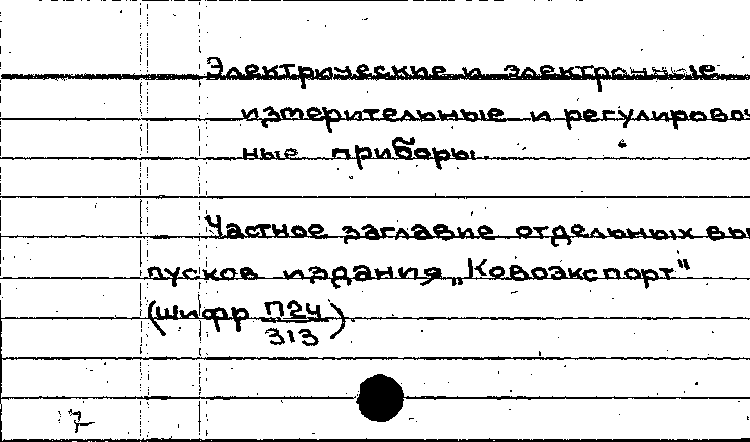 Электрические и электронные
измерительные и регулировоч
ные приборы.
Частное заглавие отдельных вы
пусков издания „Ковоэкспорт"
(шифр П24
313).